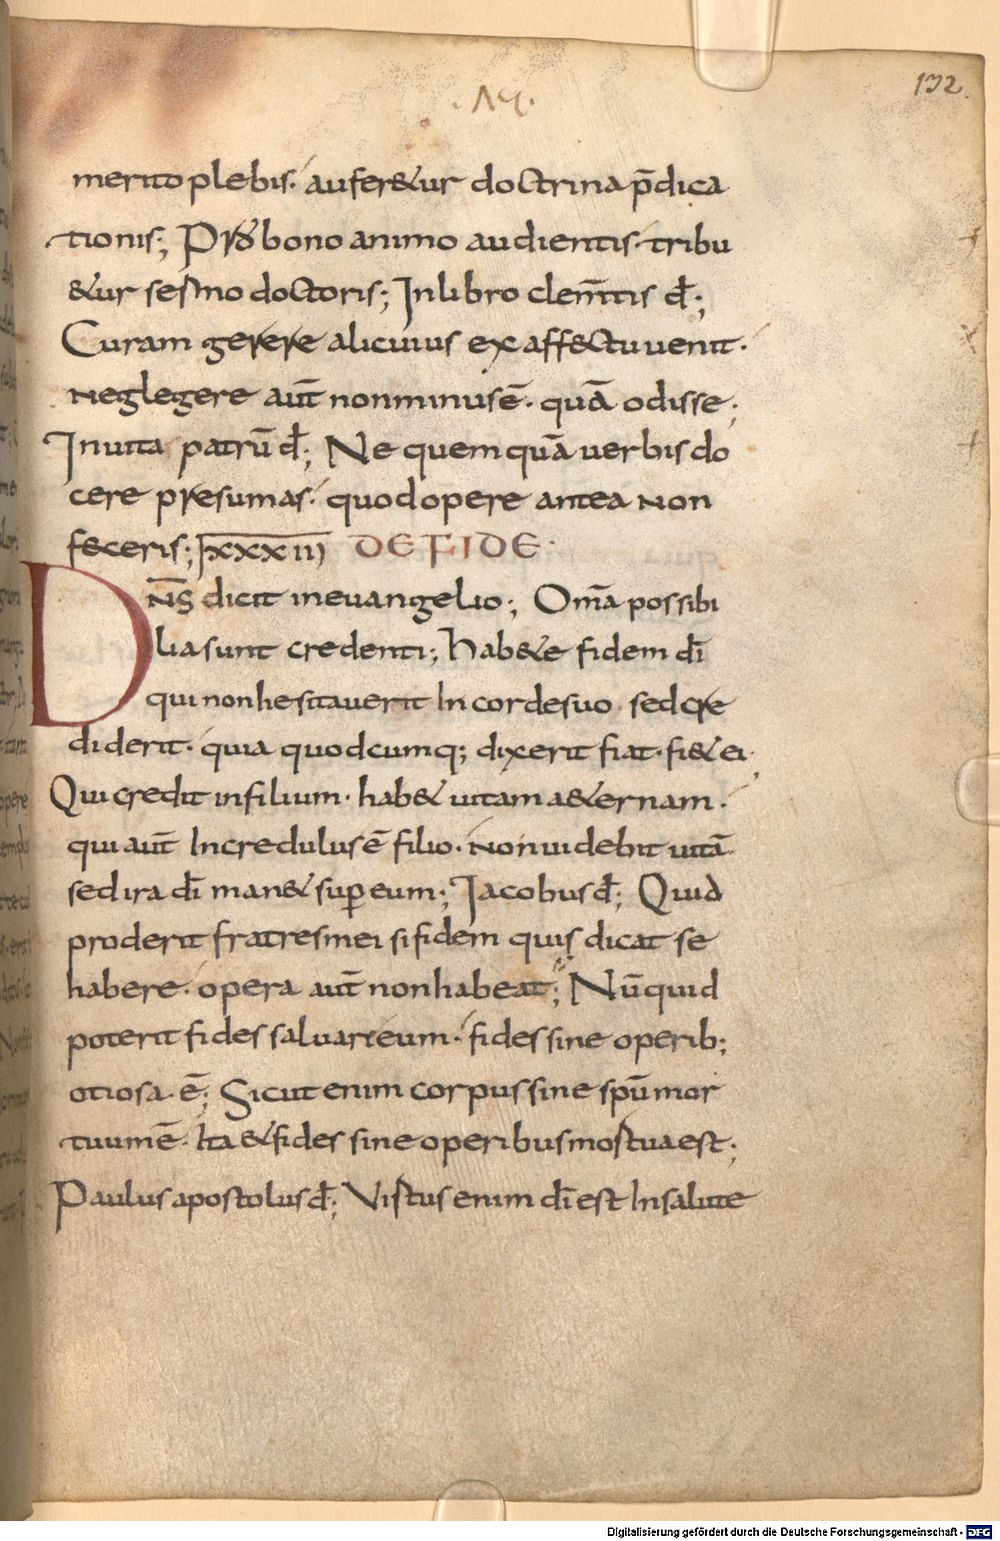 132
merito plebis· aufer&ur doctrina p̄dica
tionis; Pro bono animo audientis· tribu
&ur sermo doctoris; In libro clem̄tis d̄;
Curam gerere alicuius ex affectu uenit·
neglegere aut̄ non minus ē· quā odisse;
In uita patrū d̄; Ne quemquā uerbis do
cere presumas· quod opere antea non
feceris; XXXIII DE FIDE·
DN̄S dicit in euangelio; Om̄a possibi
lia sunt credenti; Hab&e fidem dī
qui non hesitauerit In corde suo sed cre
diderit· quia quodcumq; dixerit fiat· fi& ei·
Qui credit in filium· hab& uitam a&ernam·
qui aut̄ Incredulus ē filio· non uidebit uitā
sed ira dī man& sup eum; Iacobus d̄; Quid
proderit fratres mei si fidem quis dicat se
habere· opera aut̄ non habeat; Nūquid
poterit fides saluare eum· fides sine operib;
otiosa· ē; Sicut enim corpus sine spū mor
tuum ē· Ita & fides sine operibus mostua est;
Paulus apostolus d̄; Vistus enim dī est In salute
Digitalisierung gefördert durch die Deutsche Forschungsgemeinschaft - DFG